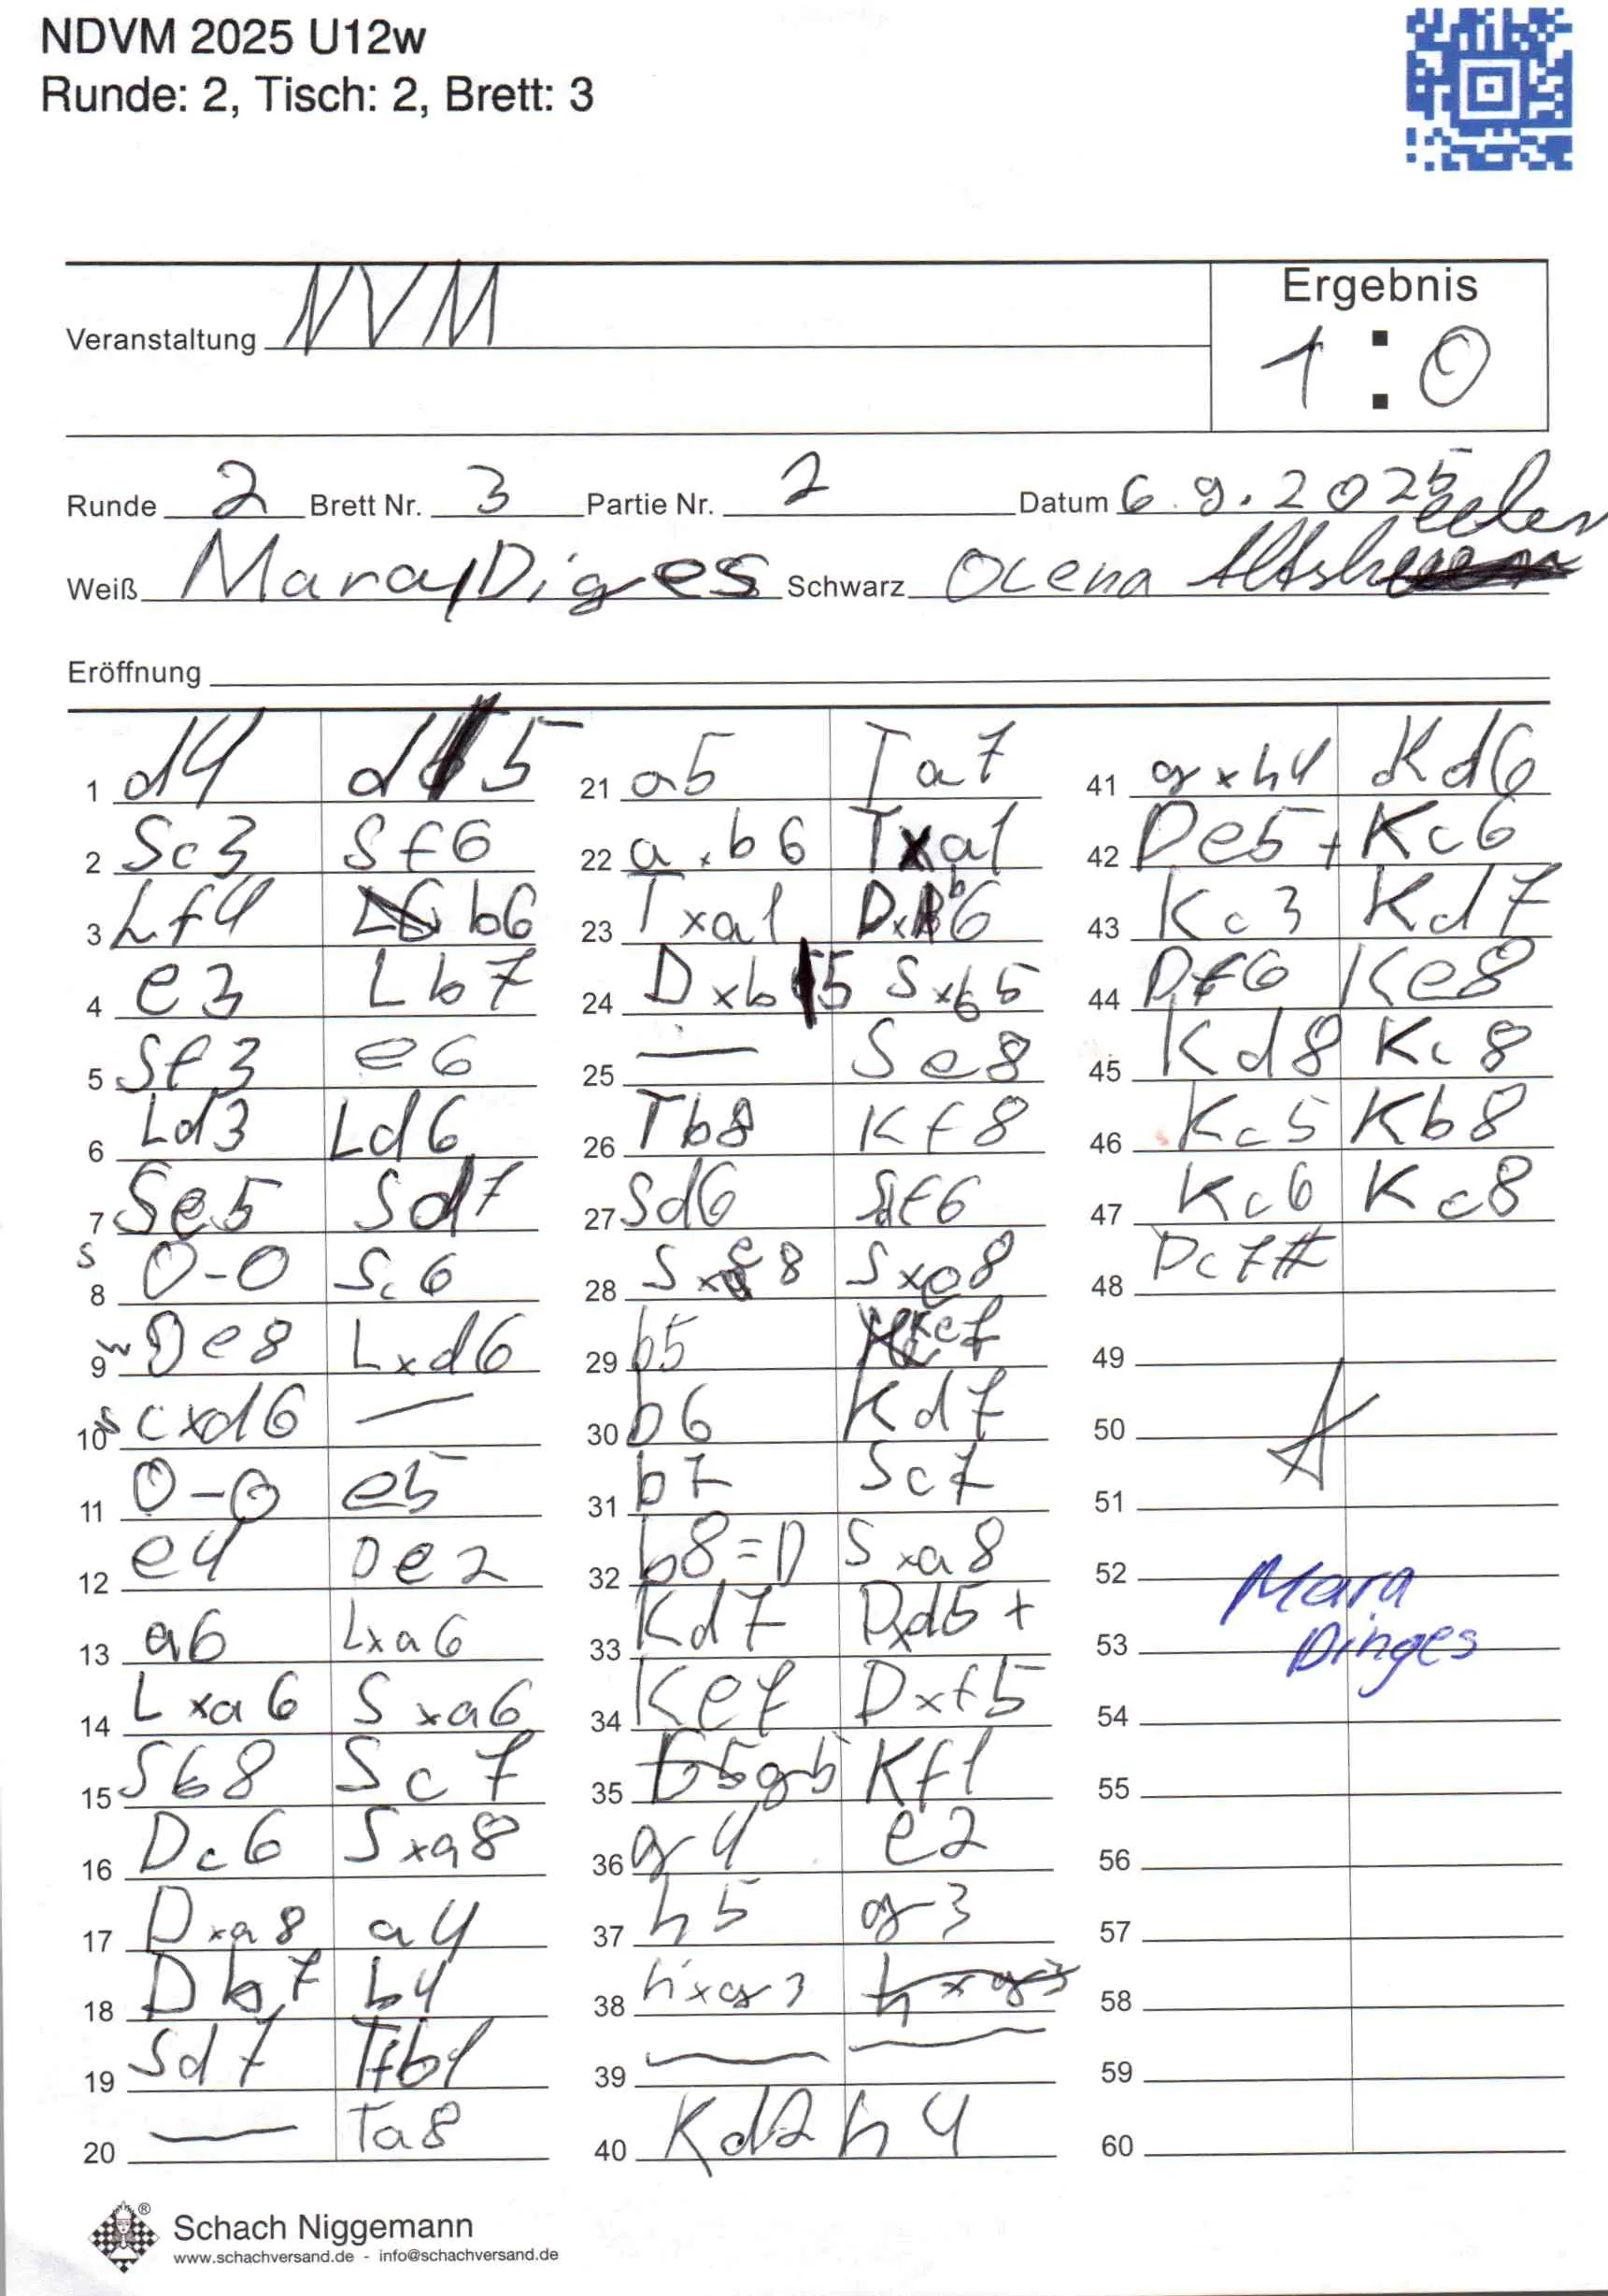 NDVM 2025 U12w
Runde: 2, Tisch: 2, Brett: 3
Ergebnis
Veranstaltung NVM
1 : 0
Runde 2 Brett Nr. 3 Partie Nr. 2 Datum 6.9.2025
Weiß Mara Diges Schwarz Ocena
Eröffnung
1 d4 d5 21 a5 Ta7 41 gxh4 Kd6
2 Sc3 Sf6 22 a.b6 Txa1 42 De5+ Kc6
3 Lf4 b6 23 Txa1 Dxb6 43 Kc3 Kd7
4 e3 Lb7 24 Dxb5 Sxb5 44 Df6 Ke8
5 Sf3 e6 25 — Se8 45 Kd8 Kc8
6 Ld3 Ld6 26 Tb8 Kf8 46 Kc5 Kb8
7 Se5 Sd7 27 Sd6 Sf6 47 Kc6 Kc8
8 s 0-0 Sc6 28 Sxe8 Sxe8 48 Dc7#
9 w De8 Lxd6 29 b5 Ke7 49
10 s cxd6 — 30 b6 Kd7 50
11 0-0 e5 31 b7 Sc7 51
12 e4 De2 32 b8=D Sxa8 52 Mara
13 a6 Lxa6 33 Kd7 Dxd5+ 53 Dinges
14 Lxa6 Sxa6 34 Ke7 Dxf5 54
15 Sb8 Sc7 35 g5 Kf1 55
16 Dc6 Sxa8 36 g4 e2 56
17 Dxa8 a4 37 h5 g3 57
18 Db7 b4 38 hxg3 hxg3 58
19 Sd7 Tfb1 39 — — 59
20 — Ta8 40 Kd2 h4 60
®
Schach Niggemann
www.schachversand.de - info@schachversand.de